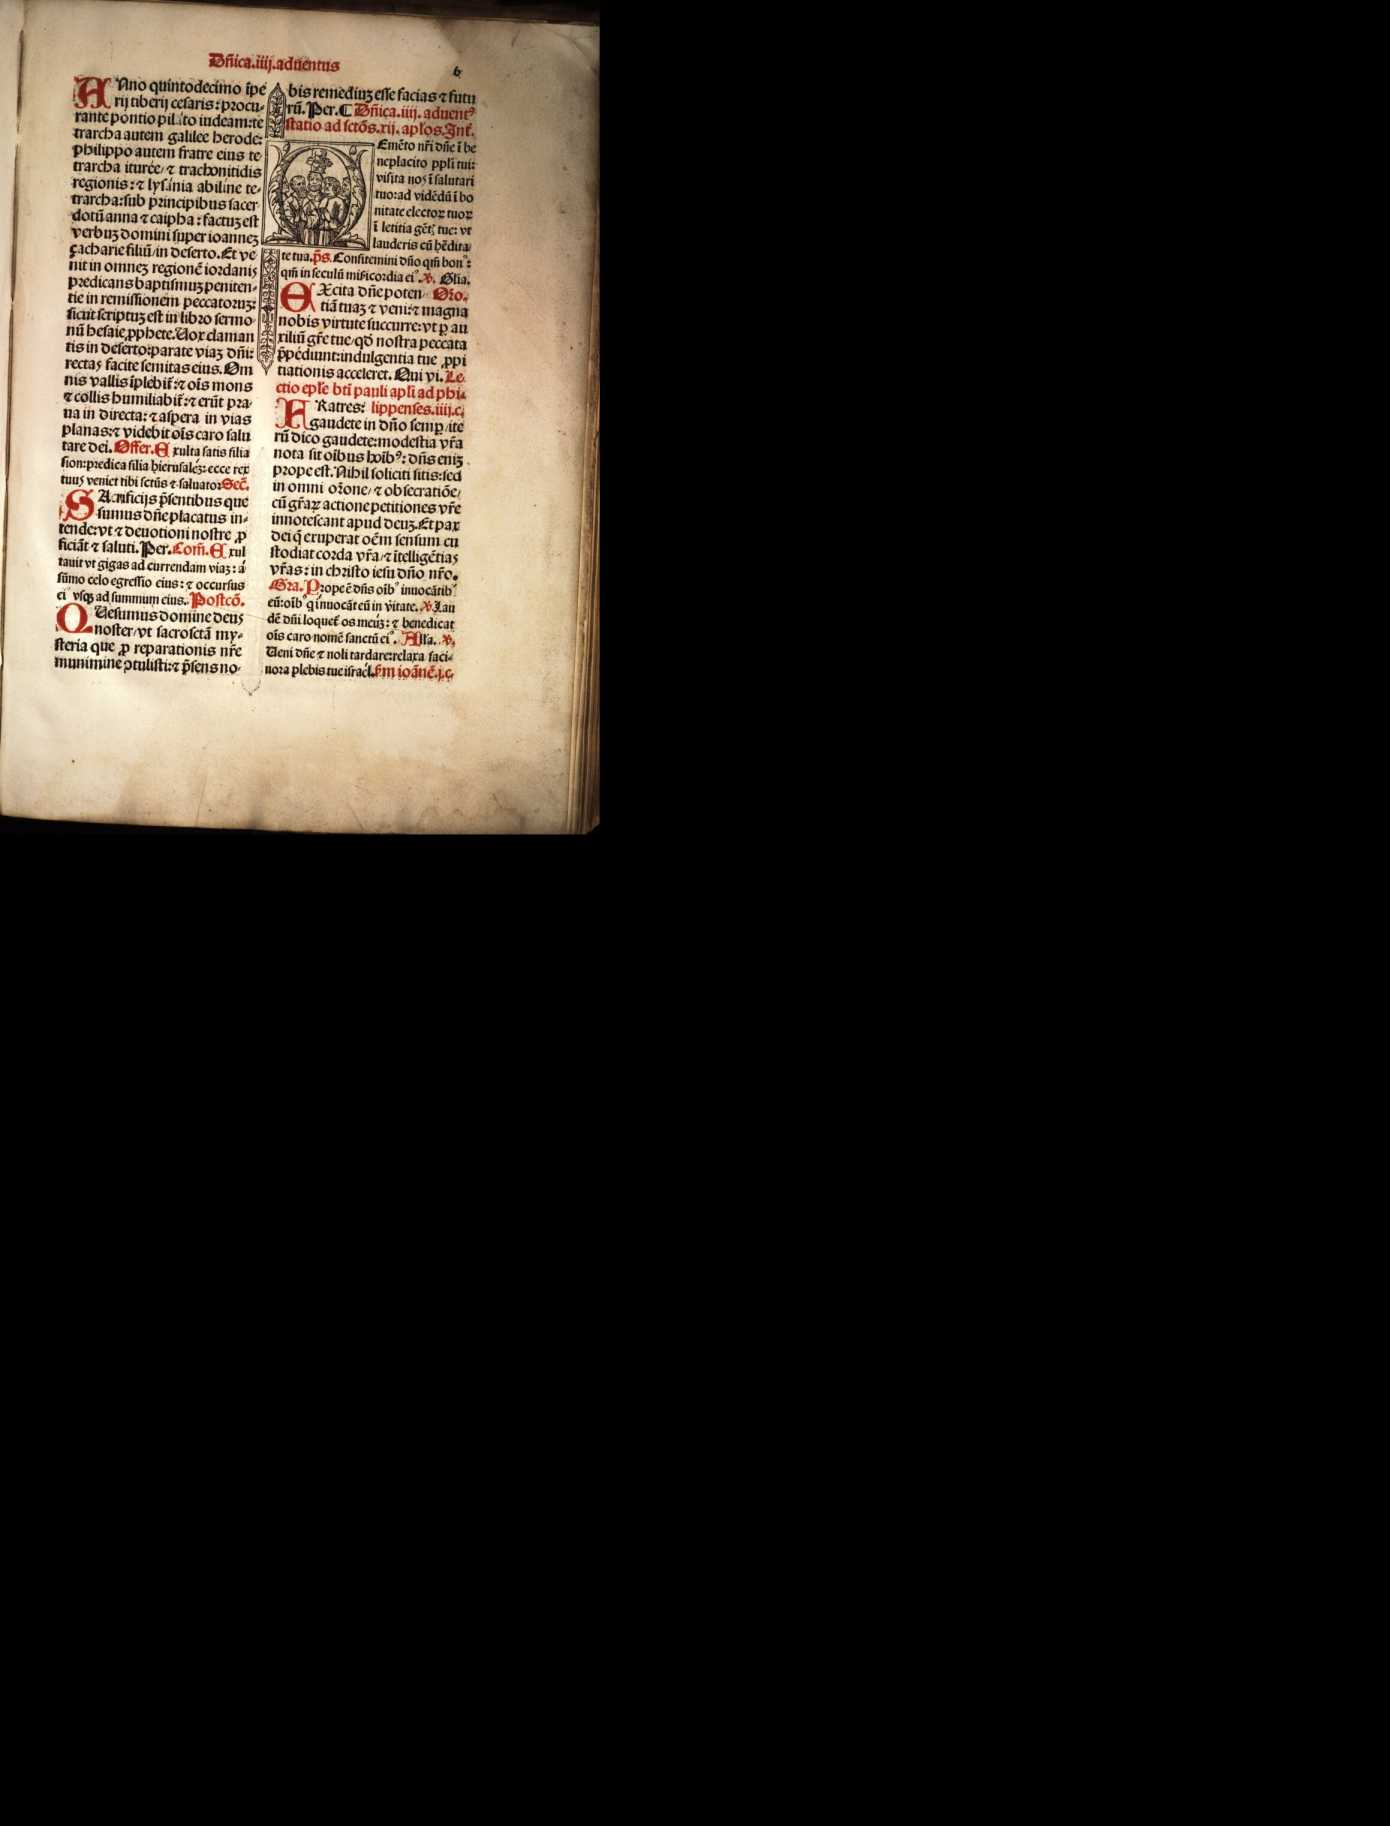 Dñica.iiij.aduentus
6
ANno quintodecimo ĩpe
rij tiberij cesaris: procu-
rante pontio pilato iudeam:te
trarcha autem galilee herode:
philippo autem fratre eius te
trarcha iturée/⁊ trachonitidis
regionis:⁊ lysania abiline te-
trarcha:sub principibus sacer
dotũ anna ⁊ caipha: factuʒ est
verbuʒ domini super ioanneʒ
çacharie filiũ/in deserto.Et ve
nit in omneʒ regionẽ iordanis
predicans baptismuʒ peniten-
tie in remissionem peccatoruʒ:
sicut scriptuʒ est in libro sermo
nũ hesaie ꝓphete.Uox claman
tis in deserto:parate viaʒ dñi:
rectas facite semitas eius. Om
nis vallis ĩplebit̃:⁊ oĩs mons
⁊ collis humiliabit̃:⁊ erũt pra-
ua in directa:⁊ aspera in vias
planas:⁊ videbit oĩs caro salu
tare dei. Offer. Exulta satis filia
sion:predica filia hierusaleʒ:ecce rex
tuus veniet tibi sctũs ⁊ saluator Sec̃.
SAcrificijs p̃sentibus que
sumus dñe placatus in-
tende:vt ⁊ deuotioni nostre ꝓ
ficiãt ⁊ saluti. Per. Com̃. Exul
tauit vt gigas ad currendam viaʒ: á
sũmo celo egressio eius: ⁊ occursus
ei⁹ vsqʒ ad summum eius. Postcõ.
QUesumus domine deus
noster/vt sacrosctã my-
steria que ꝓ reparationis nr̃e
munimine ꝯtulisti:⁊ p̃sens no-
bis remediuʒ esse facias ⁊ futu
rũ. Per. ¶ Dñica.iiij. aduent⁹
statio ad sctõs.xij. apl̃os.Int̃.
Emẽto nr̃i dñe ĩ be
neplacito ppl̃i tui:
visita nos ĩ salutari
tuo:ad vidẽdũ ĩ bo
nitate electoꝝ tuoꝝ
ĩ letitia gẽtʒ tue: vt
lauderis cũ hẽdita/
te tua.p̃s. Confitemini dño qm̃ bon⁹:
qm̃ in seculũ miſicordia ei⁹.℣. Glia.
EXcita dñe poten- Oro.
tiã tuaʒ ⁊ veni:⁊ magna
nobis virtute succurre:vt ꝑ au
xiliũ gr̃e tue/qd̃ nostra peccata
p̃pediunt:indulgentia tue ꝓpi
tiationis acceleret. Qui vi. Le-
ctio epl̃e bti pauli apl̃i ad phi-
FRatres: lippenses.iiij.c.
gaudete in dño semꝑ/ite
rũ dico gaudete:modestia vr̃a
nota sit oĩbus hoĩb⁹: dñs eniʒ
prope est.Nihil soliciti sitis:sed
in omni or̃one/⁊ obsecratiõe/
cũ gr̃aꝝ actione petitiones vr̃e
innotescant apud deuʒ.Et pax
dei q̃ exuperat oẽm sensum cu
stodiat corda vr̃a/⁊ ĩtelligẽtias
vr̃as: in christo iesu dño nr̃o.
Gra. Prope ẽ dñs oĩb⁹ inuocãtib⁹
eũ:oĩb⁹ q̃ inuocãt eũ in ṽitate. ℣.Lau
dẽ dñi loquet̃ os meuʒ: ⁊ benedicat
oĩs caro nomẽ sanctũ ei⁹. Alla. ℣.
Ueni dñe ⁊ noli tardare:relaxa faci-
nora plebis tue israel.s̃m ioãnẽ.j.c.